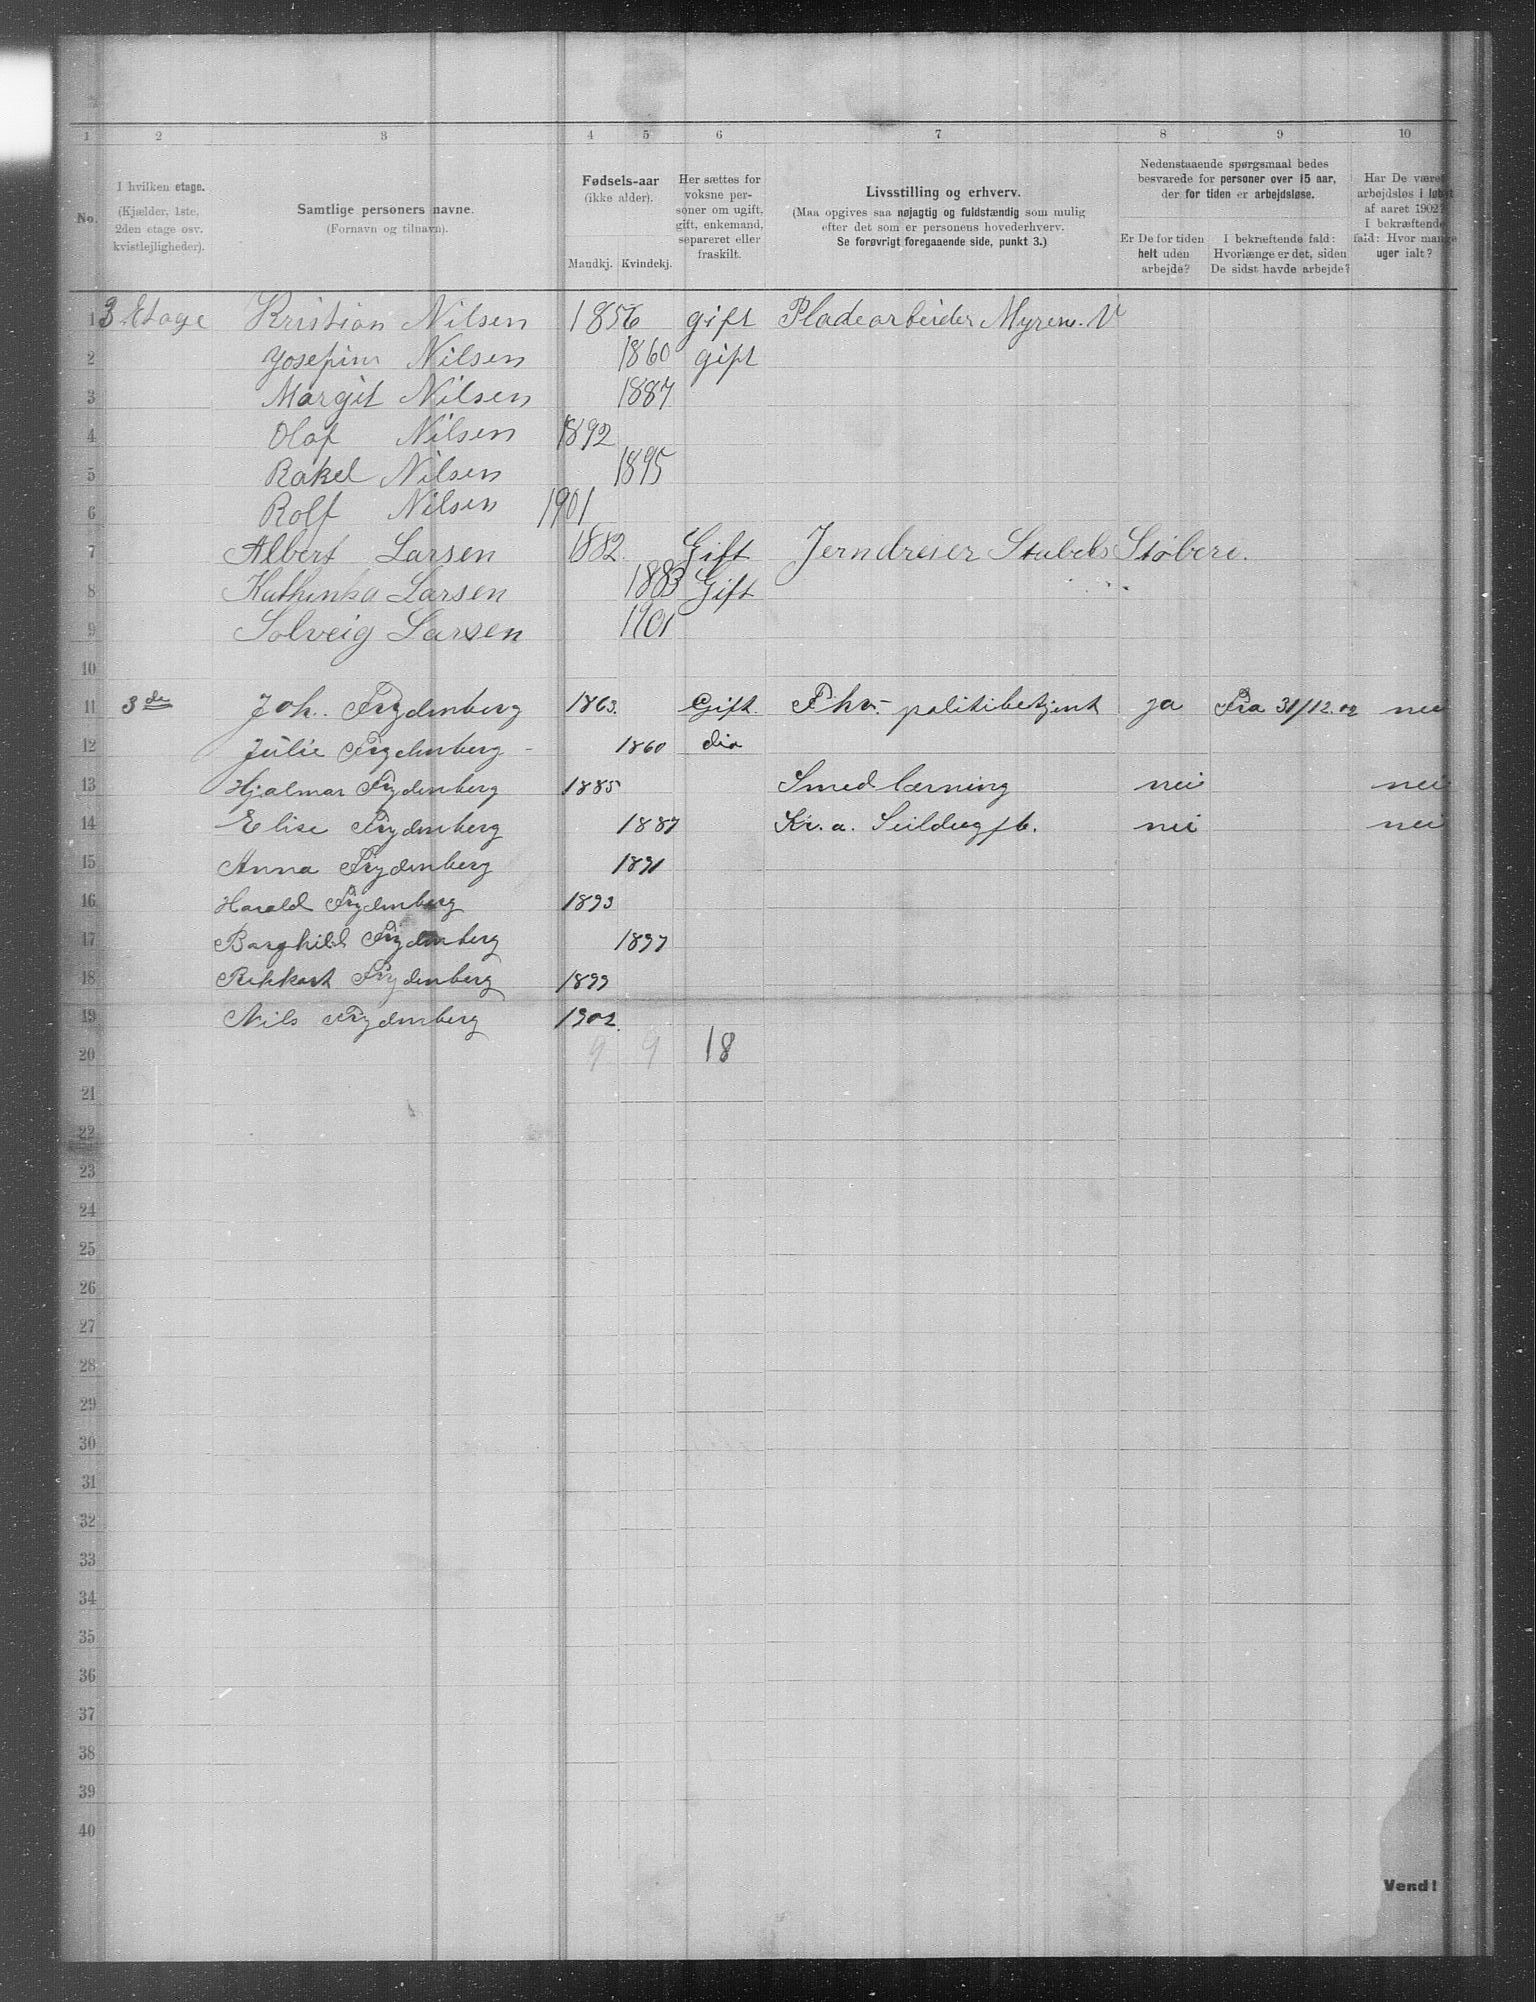 1 2 3 4 5 6 7 8 9 10
No.
I hvilken etage.
(Kjælder, 1ste,
2den etage osv.
kvistlejligheder).
Samtlige personers navne.
(Fornavn og tilnavn).
Fødsels-aar
(ikke alder).
Mandkj. Kvindekj.
Her sættes for
voksne per-
soner om ugift,
gift, enkemand,
separeret eller
fraskilt.
Livsstilling og erhverv.
(Maa opgives saa nøjagtig og fuldstændig som mulig
efter det som er personens hovederhverv.
Se forøvrigt foregaaende side, punkt 3.)
Nedenstaaende spørgsmaal bedes
besvarede for personer over 15 aar,
der for tiden er arbejdsløse.
Er De for tiden
helt uden
arbejde?
I bekræftende fald:
Hvorlænge er det, siden
De sidst havde arbejde?
Har De været
arbejdsløs i løbet
af aaret 1902?
I bekræftende
fald: Hvor mange
uger ialt?
1 3 Etage Kristian Nilsen 1856 gift Pladearbeider Myrens. V
2 Josefine Nilsen 1860 gift
3 Margit Nilsen 1887
4 Olaf Nilsen 1892
5 Rakel Nilsen 1895
6 Rolf Nilsen 1901
7 Albert Larsen 1882 Gift Jerndreier Støberi.
8 Kathinka Larsen 1883 Gift
9 Solveig Larsen 1901
10
11 3de Joh. Frydenberg 1863. Gift. Fhv. politibetjent ja Fra 31/12.02 nei
12 Julie Frydenberg 1860 dio
13 Hjalmar Frydenberg 1885 Smedlærning nei nei
14 Elise Frydenberg 1887 Kr.a. Seildugfb. nei nei
15 Anna Frydenberg 1891
16 Harald Frydenberg 1893
17 Borghild Frydenberg 1897
18 Rikkart Frydenberg 1899
19 Nils Frydenberg 1902.
20 9 9 18
21
22
23
24
25
26
27
28
29
30
31
32
33
34
35
36
37
38
39
40
Vend!